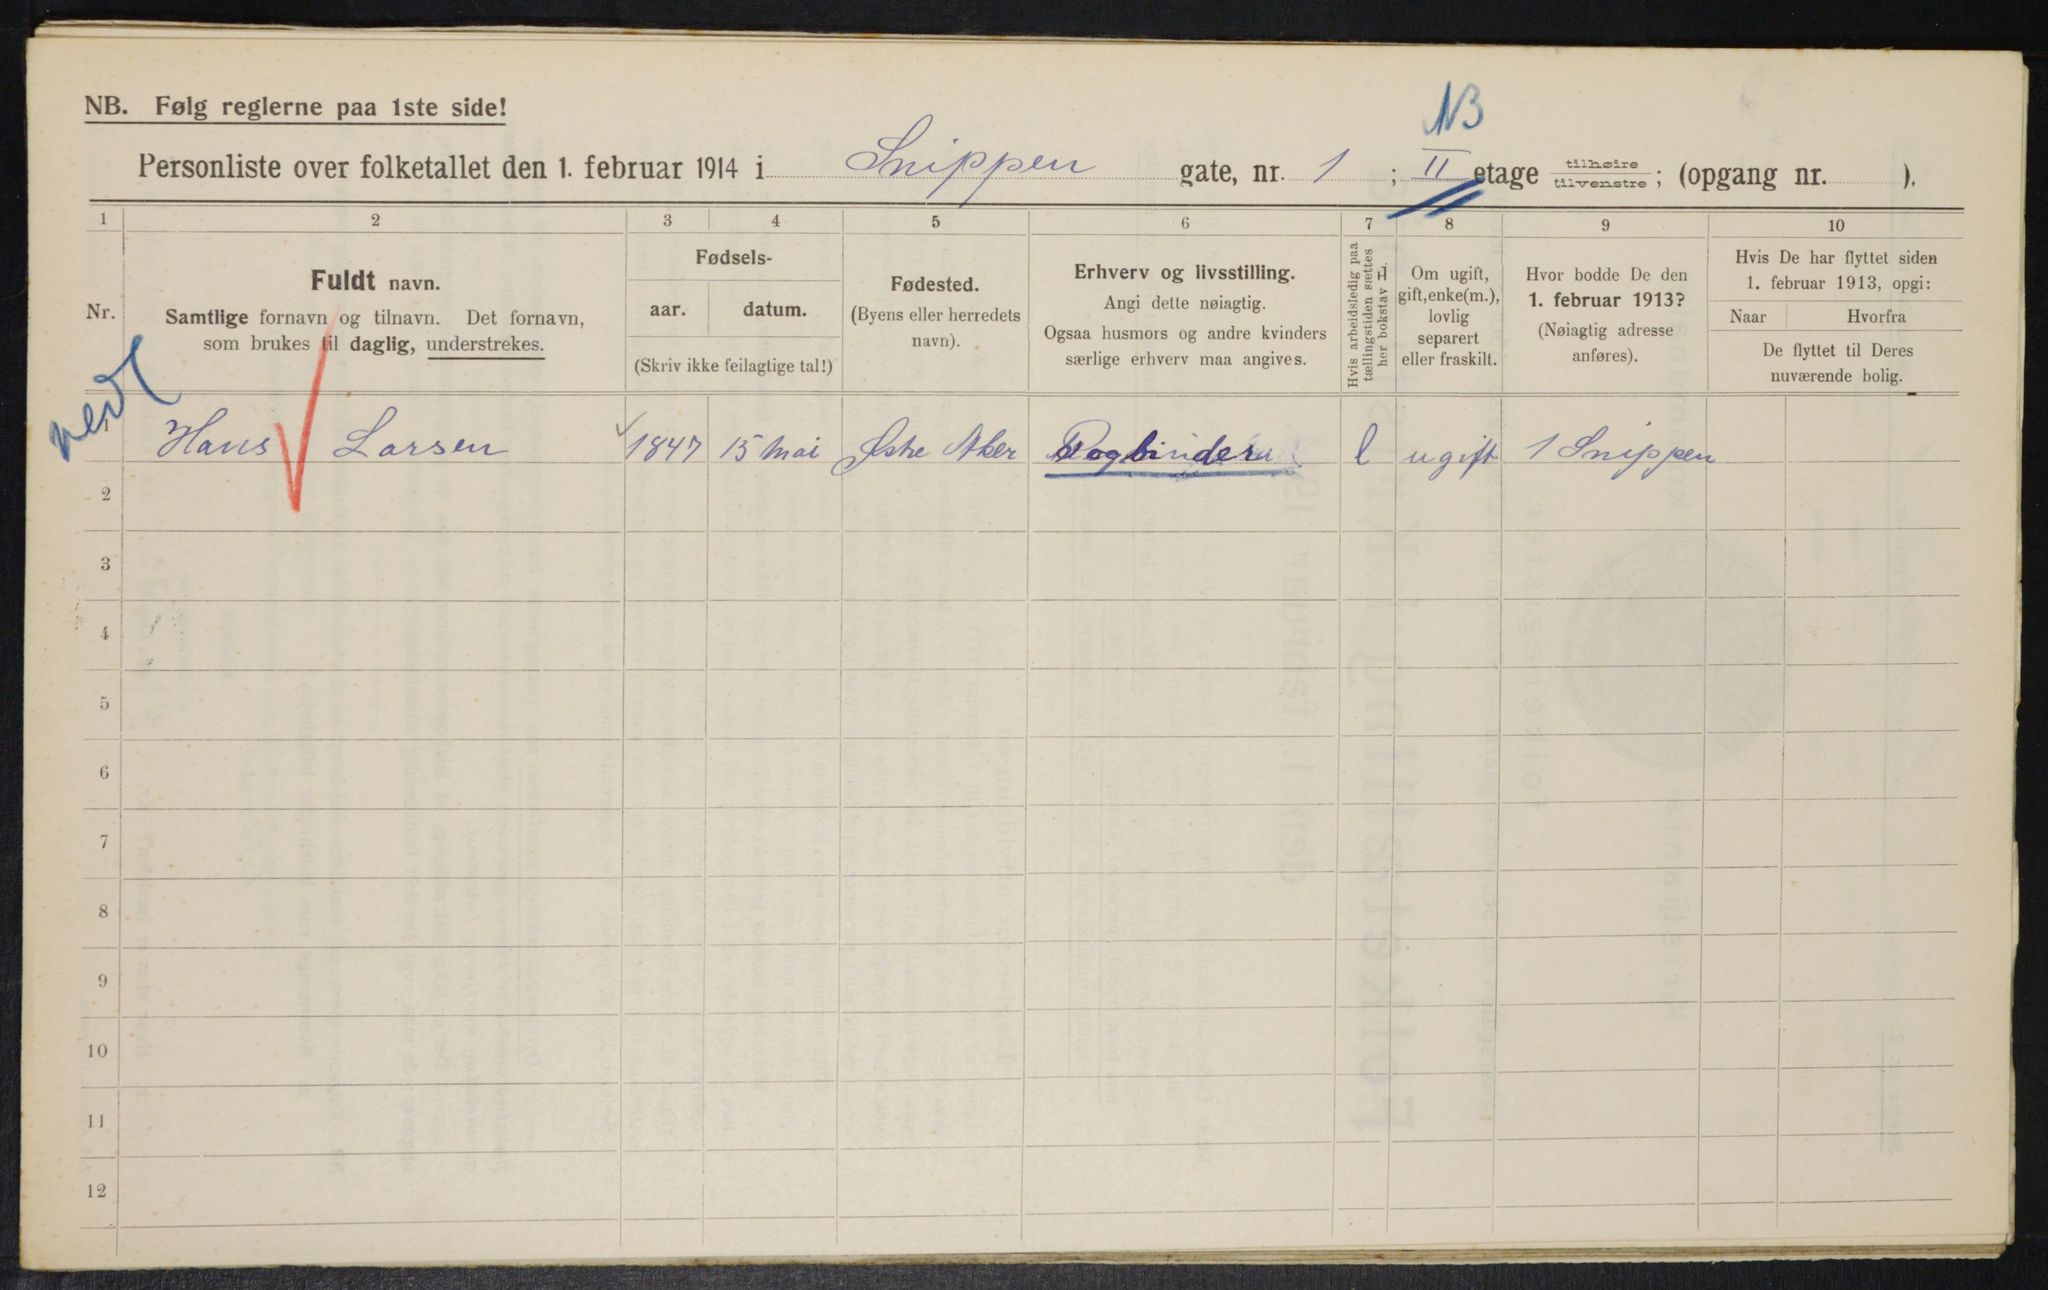 NB. Følg reglerne paa 1ste side!
NB
Personliste over folketallet den 1. februar 1914 i Snippen gate, nr. 1 ; II etage tilhøire tilvenstre ; (opgang nr. ).
1 2 3 4 5 6 7 8 9 10
Nr.
Fuldt navn.
Samtlige fornavn og tilnavn. Det fornavn,
som brukes til daglig, understrekes.
Fødsels-
aar. datum.
(Skriv ikke feilagtige tal!)
Fødested.
(Byens eller herredets
navn).
Erhverv og livsstilling.
Angi dette nøiagtig.
Ogsaa husmors og andre kvinders
særlige erhverv maa angives.
Hvis arbeidsledig paa
tællingstiden sættes
her bokstav L.
Om ugift,
gift, enke(m.),
lovlig
separert
eller fraskilt.
Hvor bodde De den
1. februar 1913?
(Nøiagtig adresse
anføres).
Hvis De har flyttet siden
1. februar 1913, opgi:
Naar Hvorfra
De flyttet til Deres
nuværende bolig.
1 Hans Larsen 1847 15 Mai Østre Aker Bogbinder l ugift 1 Snippen
2
3
4
5
6
7
8
9
10
11
12